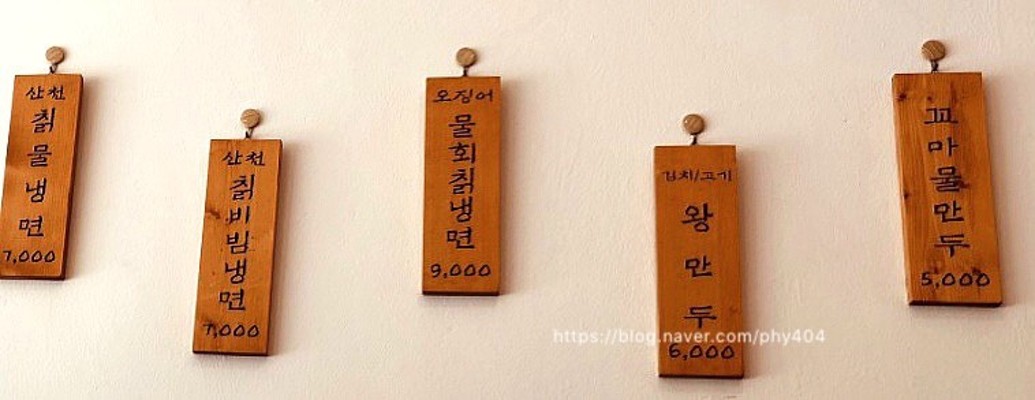 산천
칡물냉면
7,000
산천
칡비빔냉면
7,000
오징어
물회칡냉면
9,000
김치/고기
왕만두
6,000
꼬마물만두
5,000
https://blog.naver.com/phy404